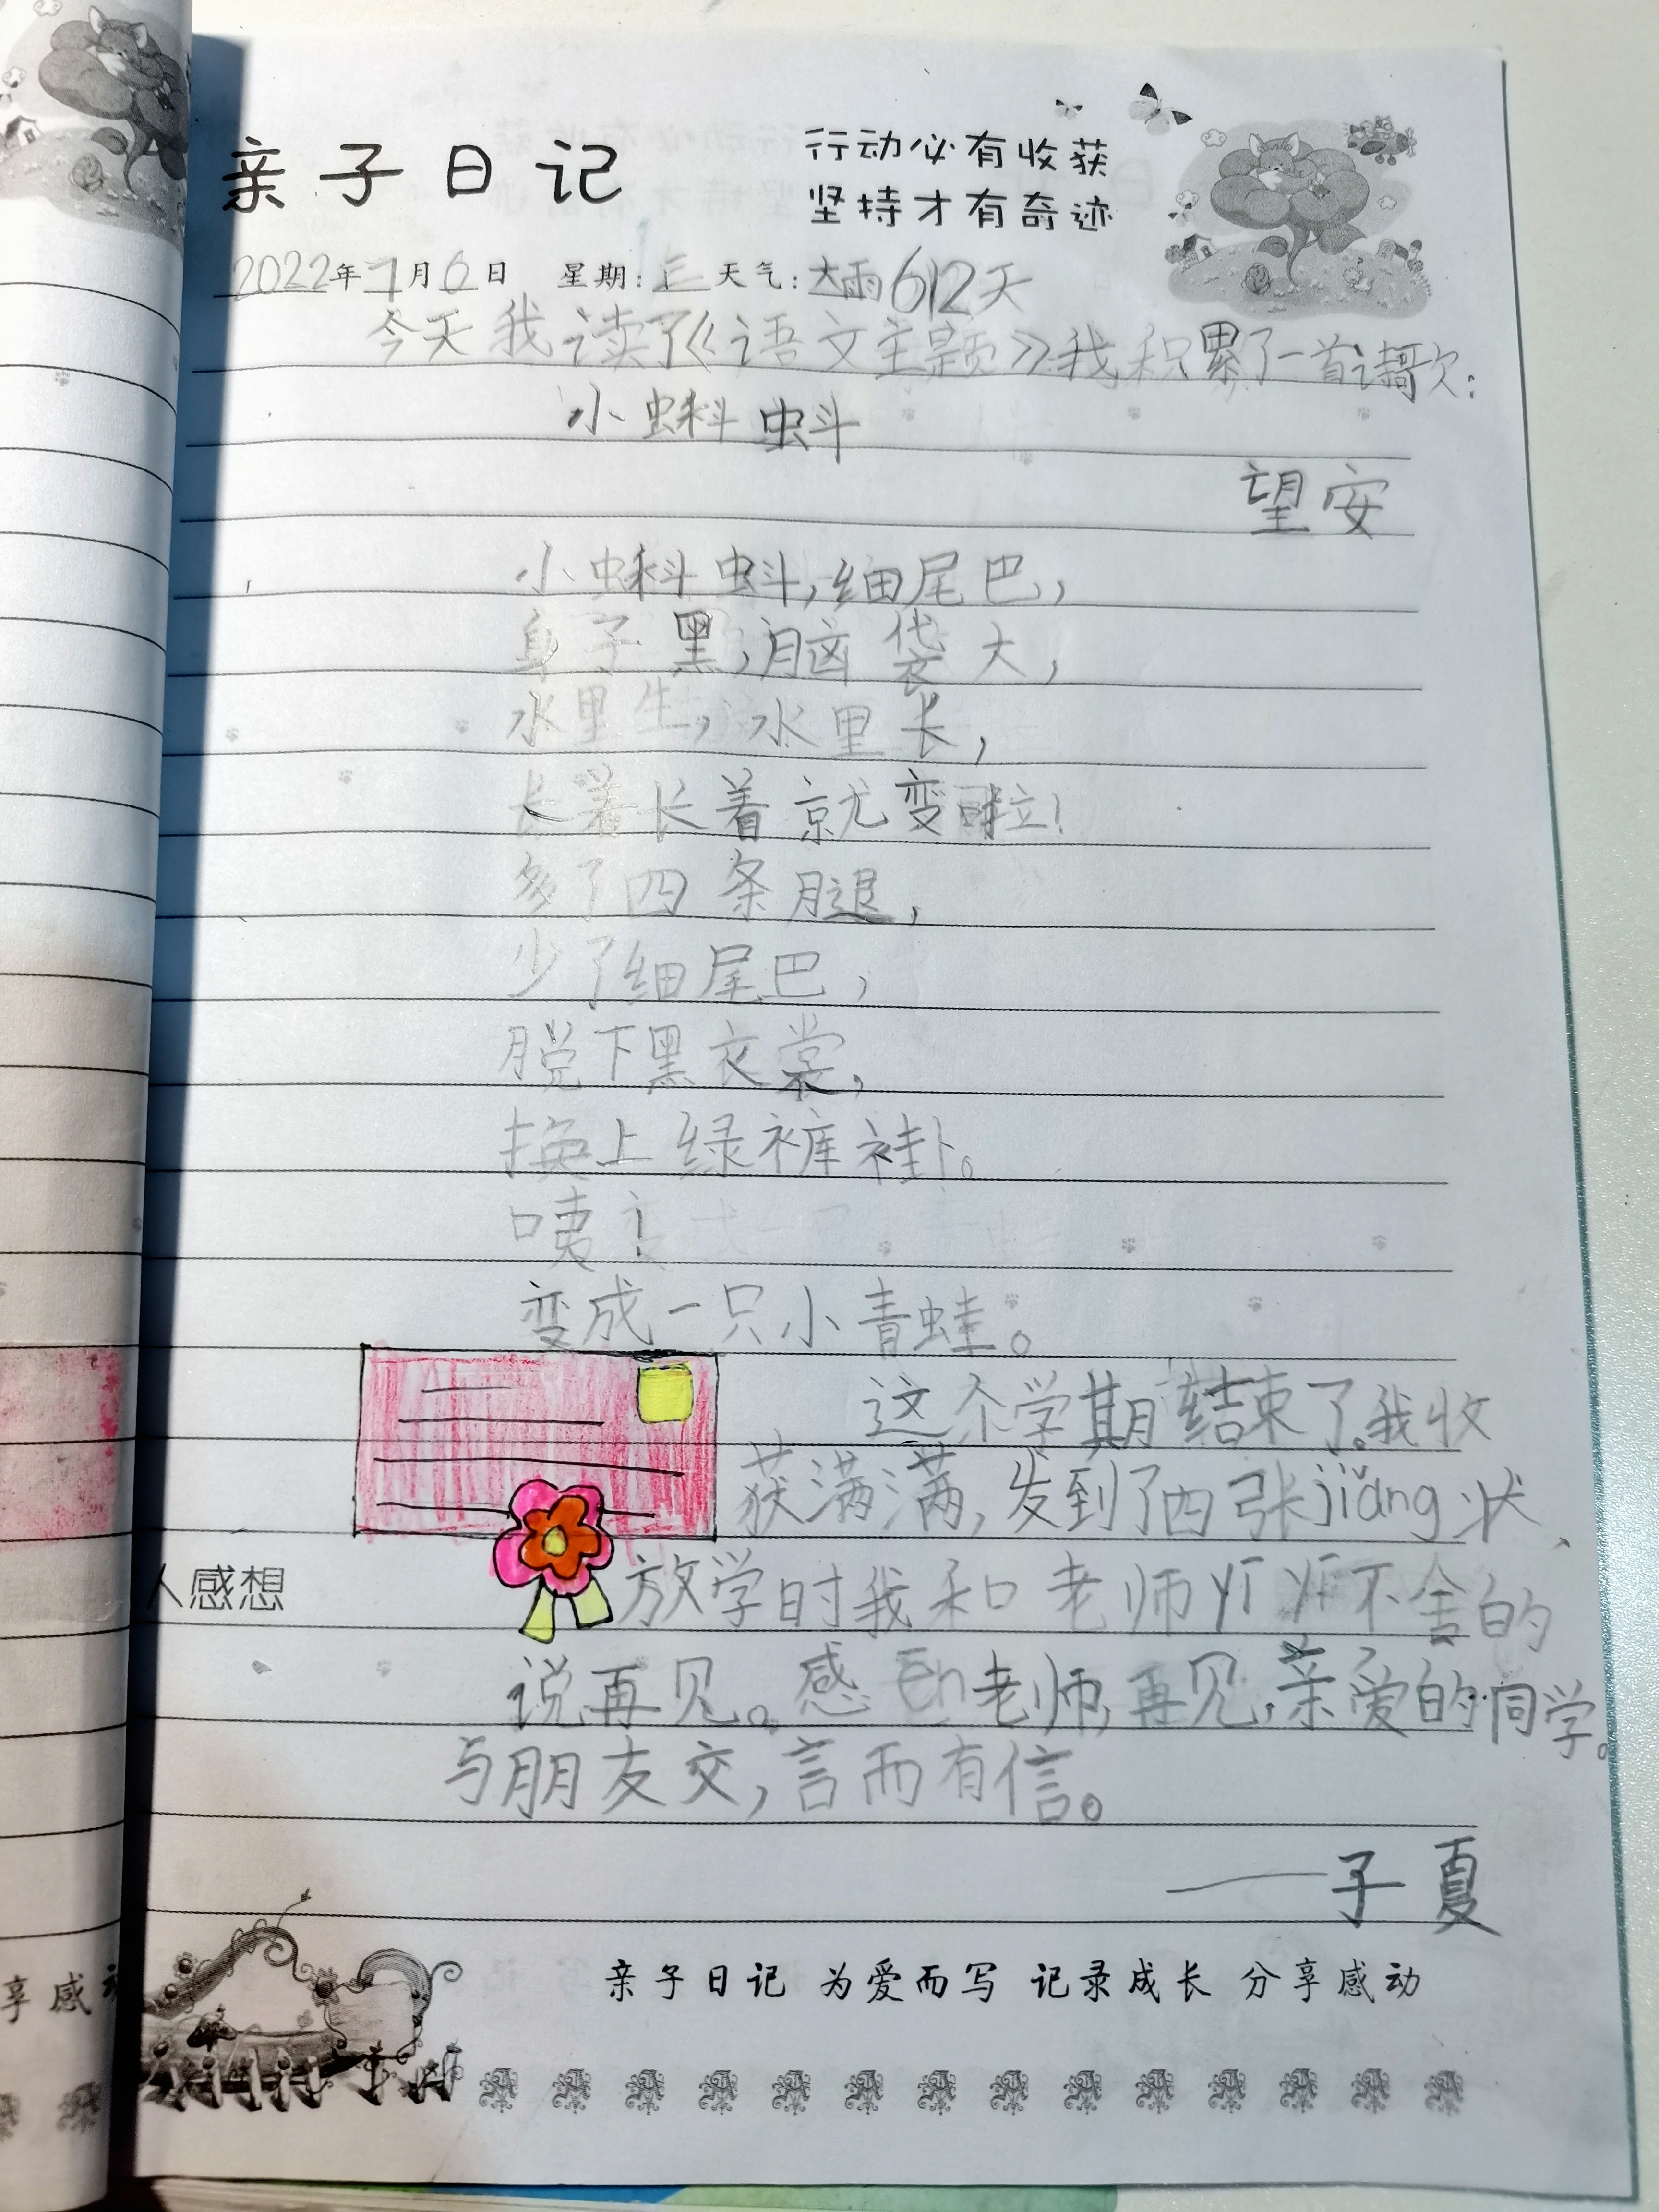 亲子日记
行动必有收获
坚持才有奇迹
2022年7月6日 星期:三 天气:大雨 612天
今天我读了《语文主题》我积累了一首诗歌:
小蝌蚪
望安
小蝌蚪,细尾巴,
身子黑,脑袋大,
水里生,水里长,
长着长着就变啦!
多了四条腿,
少了细尾巴,
脱下黑衣裳,
换上绿裤褂。
咦!
变成一只小青蛙。
这个学期结束了。我收
获满满,发到了四张jiǎng状、
放学时我和老师yī yī不舍的
人感想
说再见。感ēn老师,再见,亲爱的同学。
与朋友交,言而有信。
——子夏
亲子日记 为爱而写 记录成长 分享感动
享感动